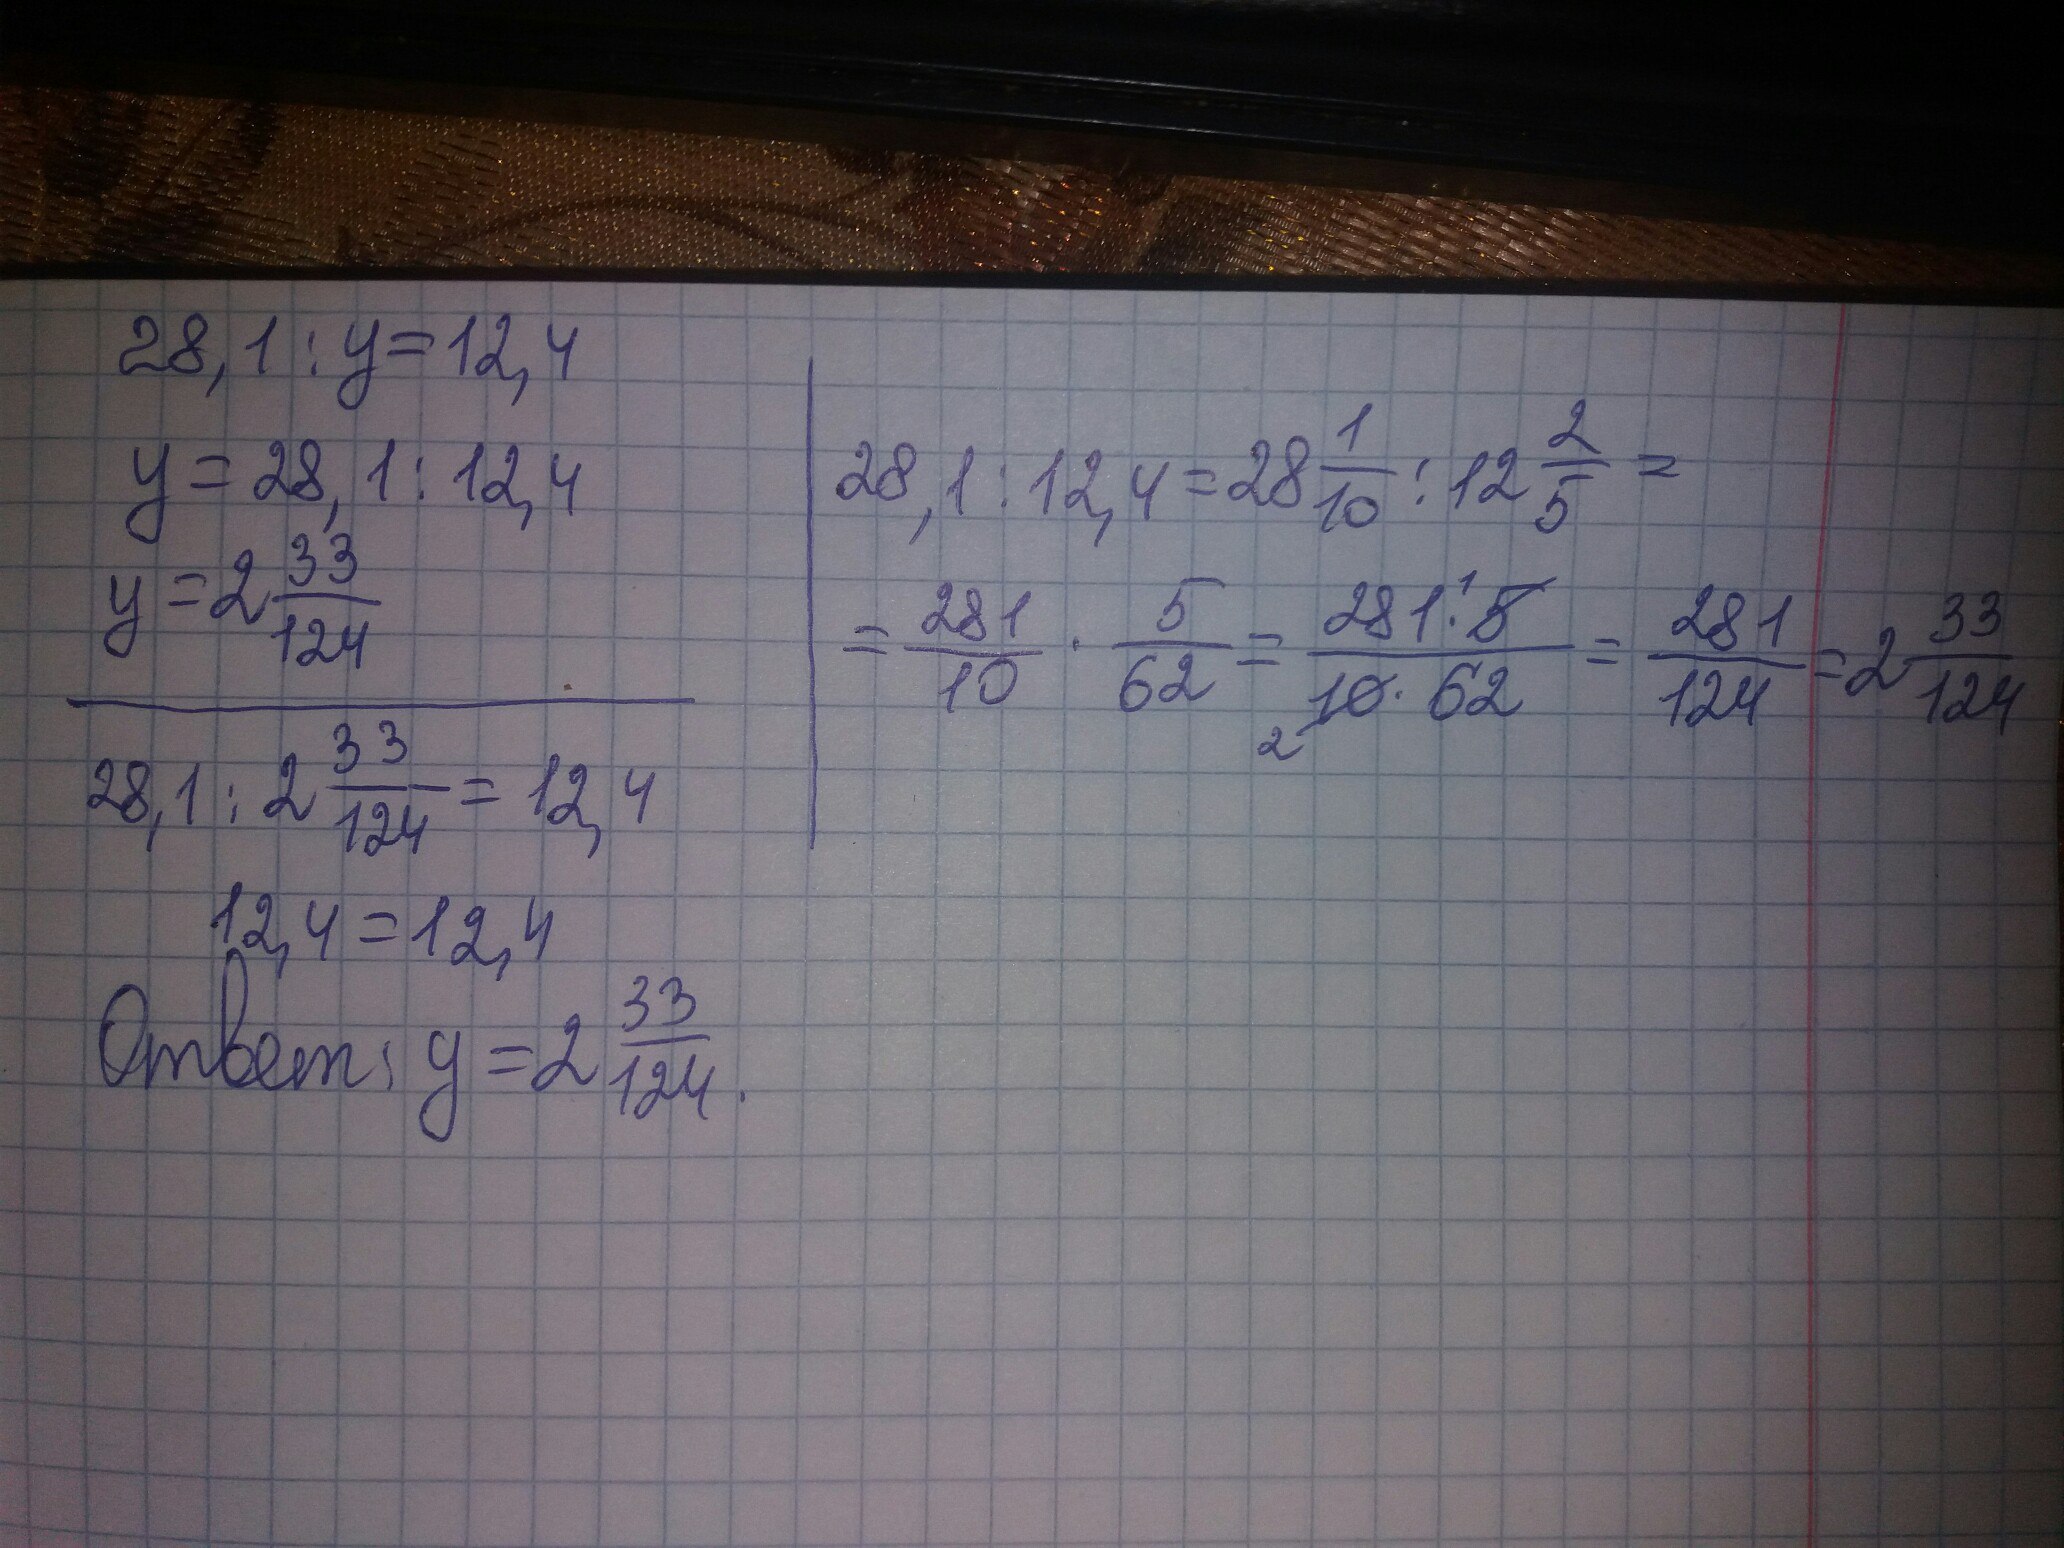 28,1 : y = 12,4
y = 28,1 : 12,4
y = 2 33/124
28,1 : 2 33/124 = 12,4
12,4 = 12,4
Ответ: y = 2 33/124.
28,1 : 12,4 = 28 1/10 : 12 2/5 =
= 281/10 · 5/62 = 281 · 5 1/10 · 62 2 = 281/124 = 2 33/124